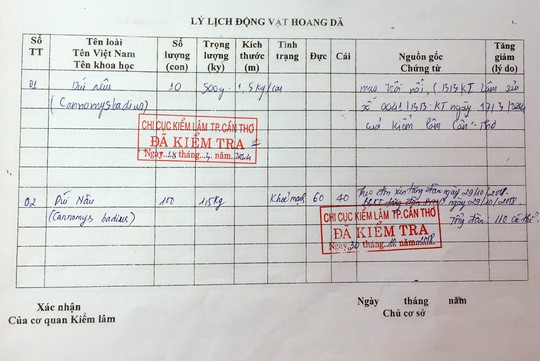 LÝ LỊCH ĐỘNG VẬT HOANG DÃ
Số TT
Tên loài
Tên Việt Nam
Tên khoa học
Số lượng (con)
Trọng lượng (ky)
Kích thước (m)
Tình trạng
Đực
Cái
Nguồn gốc
Chứng từ
Tăng giảm (lý do)
01
Dúi nâu
(Cannamys badius)
10
500g - 1,5kg/con
số 0041/BB-KT ngày 17/3/2014
của kiểm lâm Cần Thơ
CHI CỤC KIỂM LÂM TP.CẦN THƠ
ĐÃ KIỂM TRA
Ngày 18 tháng 3 năm 2014
02
Dúi Nâu
(Cannamys badius)
100
1,5kg
Khoẻ mạnh
60
40
Theo đơn xin tăng đàn ngày 29/10/2018.
ngày 29/10/2018
Tổng đàn: 110 cá thể
CHI CỤC KIỂM LÂM TP.CẦN THƠ
ĐÃ KIỂM TRA
Ngày 30 tháng 10 năm 2018
Xác nhận
Của cơ quan Kiểm lâm
Ngày tháng năm
Chủ cơ sở